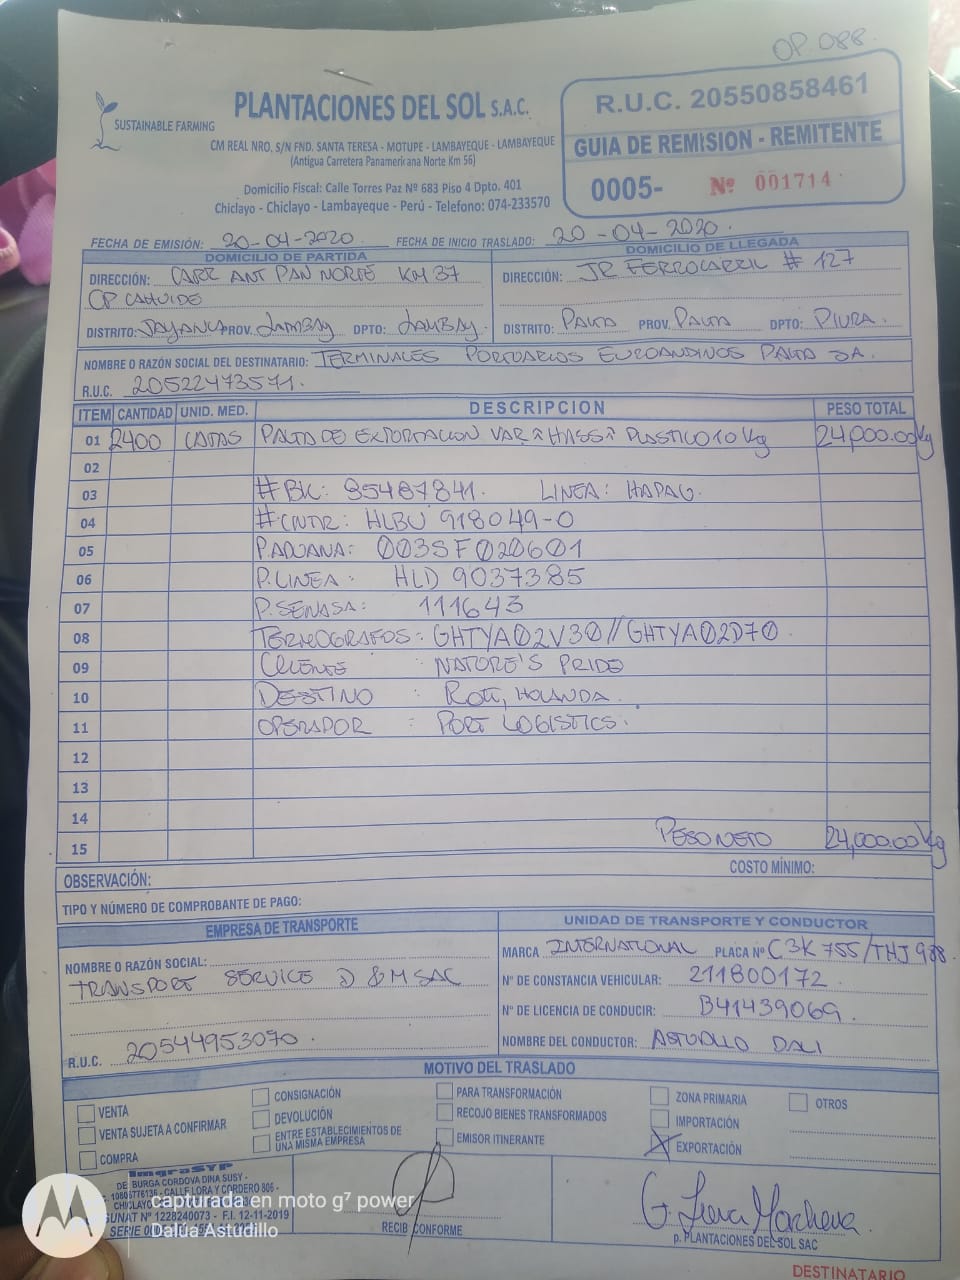 OP. 088.
SUSTAINABLE FARMING
PLANTACIONES DEL SOL S.A.C.
CM REAL NRO. S/N FND. SANTA TERESA - MOTUPE - LAMBAYEQUE - LAMBAYEQUE
(Antigua Carretera Panamericana Norte Km 56)
Domicilio Fiscal: Calle Torres Paz Nº 683 Piso 4 Dpto. 401
Chiclayo - Chiclayo - Lambayeque - Perú - Telefono: 074-233570
R.U.C. 20550858461
GUIA DE REMISION - REMITENTE
0005- Nº 001714
FECHA DE EMISIÓN: 20-04-2020 FECHA DE INICIO TRASLADO: 20-04-2020.
DOMICILIO DE PARTIDA
DIRECCIÓN: CARR ANT PAN NORTE KM 37
CP CAHUIDE
DISTRITO: JAYANCA PROV. LAMBAY DPTO: LAMBAY.
DOMICILIO DE LLEGADA
DIRECCIÓN: JR FERROCARRIL # 127
DISTRITO: PAITA PROV. PAITA DPTO: PIURA.
NOMBRE O RAZÓN SOCIAL DEL DESTINATARIO: TERMINALES PORTUARIOS EUROANDINOS PAITA SA.
R.U.C. 20522473571.
ITEM CANTIDAD UNID. MED. DESCRIPCION PESO TOTAL
01 2400 CAJAS PALTA DE EXPORTACION VAR "HASS" PLASTICO 10 Kg 24,000.00 Kg
02
03 #BK: 95487841. LINEA: HAPAG.
04 #CNTR: HLBU 918049-0
05 P.ADUANA: 003SF020601
06 P.LINEA: HLD 9037385
07 P.SENASA: 111643
08 TERMOGRAFOS: GHTYA02V30//GHTYA02D70
09 CLIENTE : NATURE'S PRIDE
10 DESTINO : ROTT, HOLANDA.
11 OPERADOR : PORT LOGISTICS.
12
13
14
15 PESO NETO 24,000.00 Kg
COSTO MÍNIMO:
OBSERVACIÓN:
TIPO Y NÚMERO DE COMPROBANTE DE PAGO:
EMPRESA DE TRANSPORTE
NOMBRE O RAZÓN SOCIAL:
TRANSPORT SERVICE D & M SAC
R.U.C. 20544953070.
UNIDAD DE TRANSPORTE Y CONDUCTOR
MARCA INTERNATIONAL PLACA Nº C3K 755/THJ 988
Nº DE CONSTANCIA VEHICULAR: 211800172
Nº DE LICENCIA DE CONDUCIR: B41439069.
NOMBRE DEL CONDUCTOR: ASTUDILLO DALI
MOTIVO DEL TRASLADO
VENTA
VENTA SUJETA A CONFIRMAR
COMPRA
CONSIGNACIÓN
DEVOLUCIÓN
ENTRE ESTABLECIMIENTOS DE
UNA MISMA EMPRESA
PARA TRANSFORMACIÓN
RECOJO BIENES TRANSFORMADOS
EMISOR ITINERANTE
ZONA PRIMARIA
IMPORTACIÓN
EXPORTACIÓN
OTROS
ImgraSYP
DE BURGA CORDOVA DINA SUSY -
CALLE LORA Y CORDERO 806 -
CHICLAYO
SUNAT Nº 1228240073 - F.I. 12-11-2019
SERIE
RECIBÍ CONFORME
p. PLANTACIONES DEL SOL SAC
DESTINATARIO
capturada en moto g⁷ power
Dalúa Astudillo